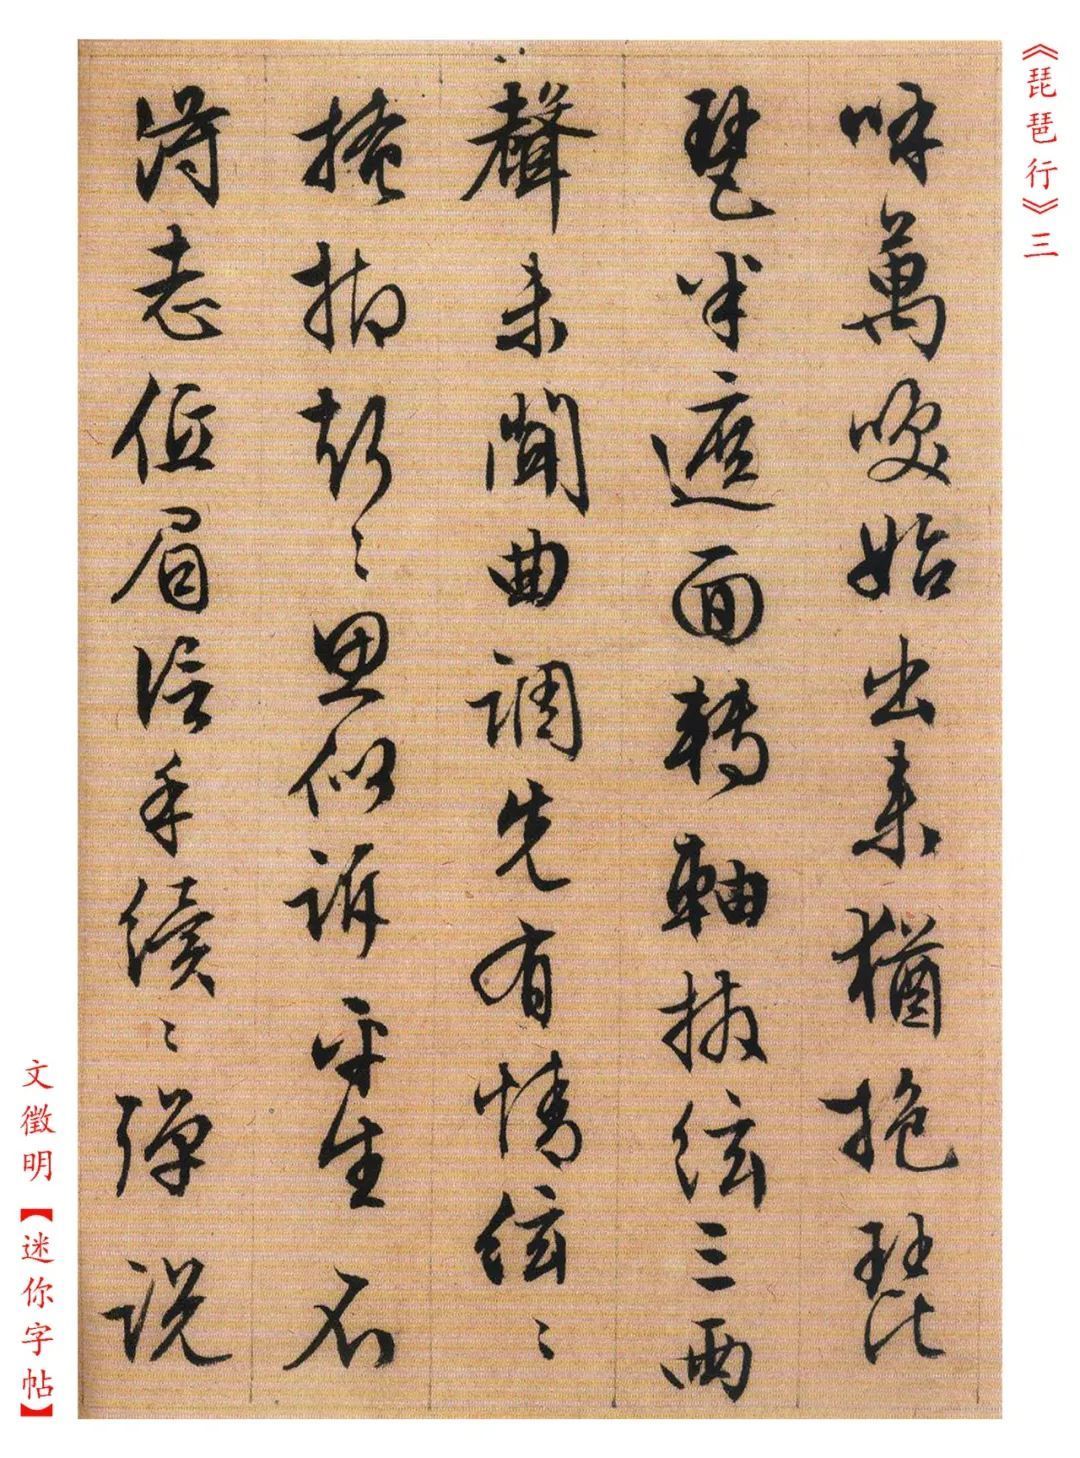 《琵琶行》三
呼萬喚始出來猶抱琵
琶半遮面轉軸撥絃三兩
聲未聞曲調先有情絃〻
掩抑聲〻思似訴平生不
得志低眉信手續〻彈説
文徵明【迷你字帖】